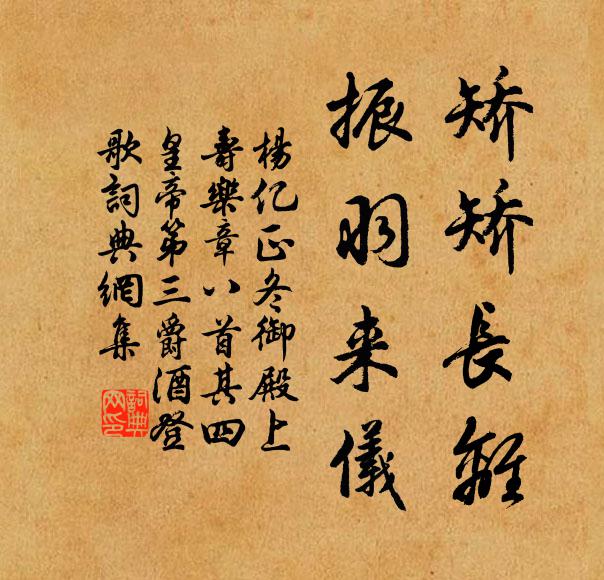 矫矫長離
振羽来儀
楊亿正冬御殿上
壽樂章八首其四
皇帝第三爵酒登
歌詞典網集
詞典
网印